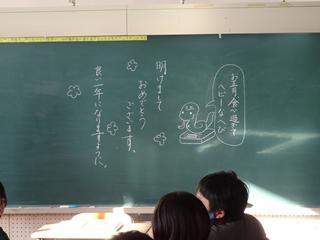 お正月食べ過ぎて
ヘビーなへび
明けまして
おめでとう
ございます。
良い一年になりますように。